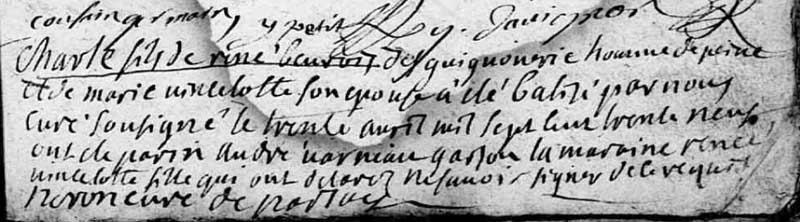 cousin germain y petit
Charle fils de rené benroist des guignonerie homme de peine
et de marie uincelotte son epouse à été batisé par nous
curé sousigné le trente auril mil sept cent trente neuf
ont ete parin andré garson la maraine renee
uincelotte fille qui ont declarez ne sauoir signer de ce requis
curé de